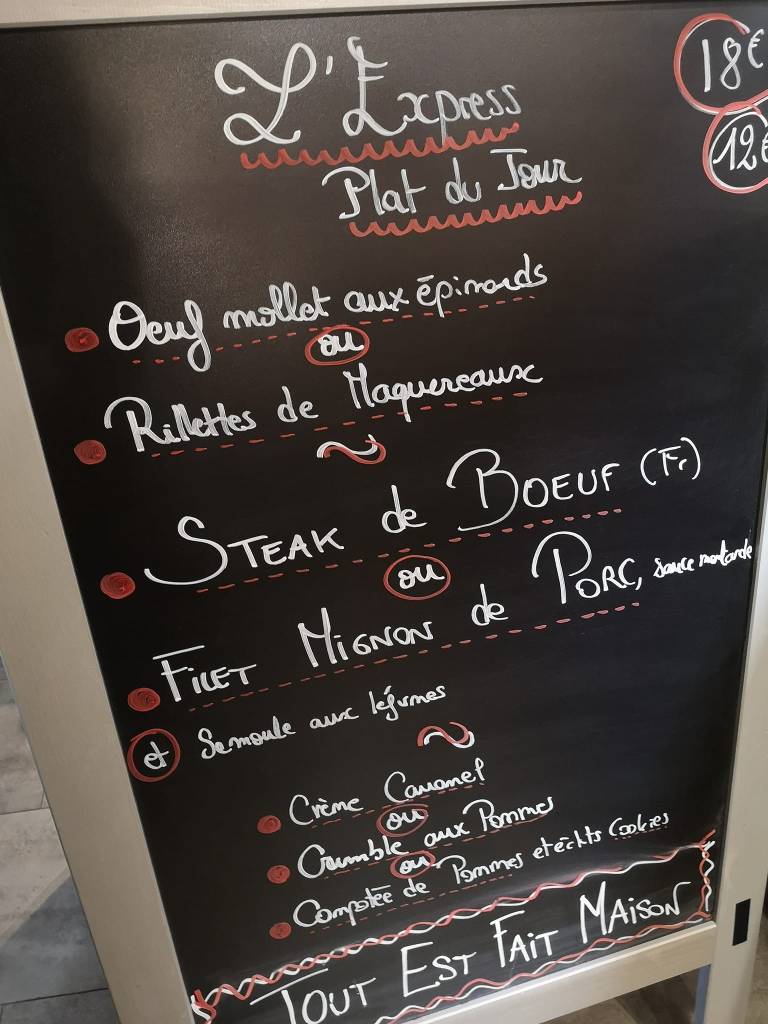 L'Express 18€
Plat du Jour 12€
Oeuf mollet aux épinards
ou
Rillettes de Maquereaux
STEAK de BOEUF (Fr)
ou
FILET MIGNON de PORC, sauce moutarde
et Semoule aux légumes
Crème Caramel
ou
Crumble aux Pommes
ou
Compotée de Pommes et éclats Cookies
TOUT EST FAIT MAISON